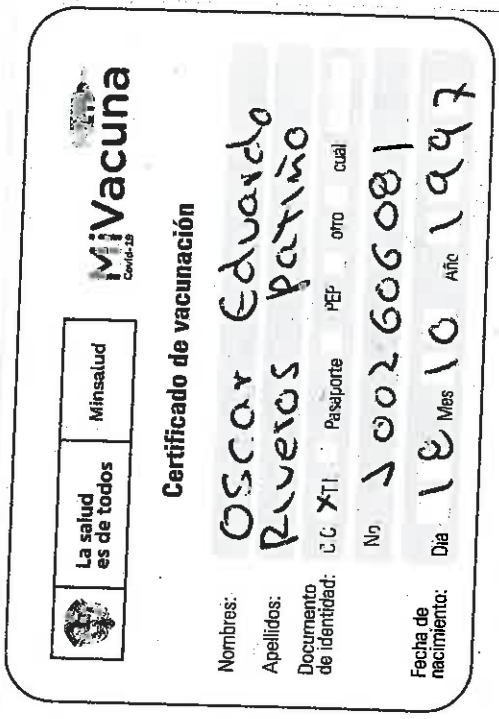 La salud
es de todos
Minsalud
MiVacuna
Covid-19
Certificado de vacunación
Nombres: Oscar Eduardo
Apellidos: Riveros Patiño
Documento
de identidad: C.C. X T.I. Pasaporte PEP otro cuál
No. 1002606081
Fecha de
nacimiento: Día 18 Mes 10 Año 1997